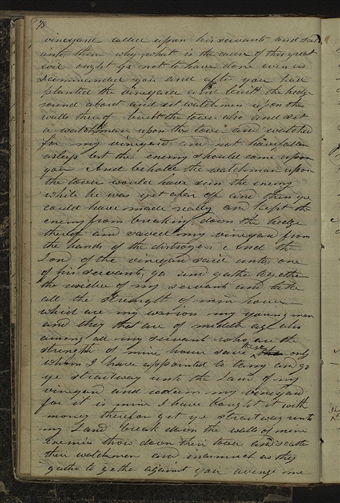 vineyard called upon his servants and said
unto them why what is the cause of this great
evil ought ye not to have done even as
I commanded you and after you had
planted the vineyard and built the hedge
round about and set watchmen upon the
walls thereof built the tower also and set
a watchman upon the tower and watched
for my vineyard and not have fallen
asleep lest the enemy should come upon
you And behold the watchman upon
the tower would have seen the enemy
while he was yet afar off and then you
could have made ready and kept the
enemy from breaking down the hedge
thereof and saved my vineyard from
the hands of the destroyer And the
Lord of the vineyard said unto one
of his servants go and gather together
the residue of my servants and take
all the strength of mine house
which are my warriors my young men
and they that are of middle age also
among all my servants who are the
strength of mine house save those only
whom I have appointed to tarry and go
ye straitway unto the Land of my
vineyard and redeem my vineyard
for it is mine I have bought it with
money therefore get ye straitway unto
my Land break down the walls of mine
enemies throw down their tower and scatter
their watchmen and inasmuch as they
gather together against you avenge me